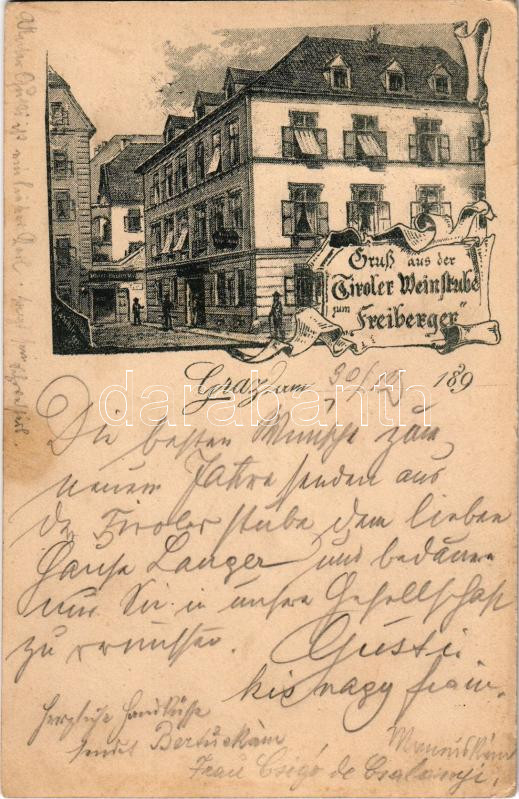 Gruß aus der
Tiroler Weinstube
zum "Freiberger"
Graz, am 30/12 189
Die besten Wünsche zum
neuen Jahre senden aus
der Tirolerstube dem lieben
Hause Langer und bedauern
nur Sie in unsere Gesellschaft
zu vermissen. Gusti
kis nagy
Herzliche Handküsse
sendet Bertuskám
Frau Csigó de Csalányi.
darabanth